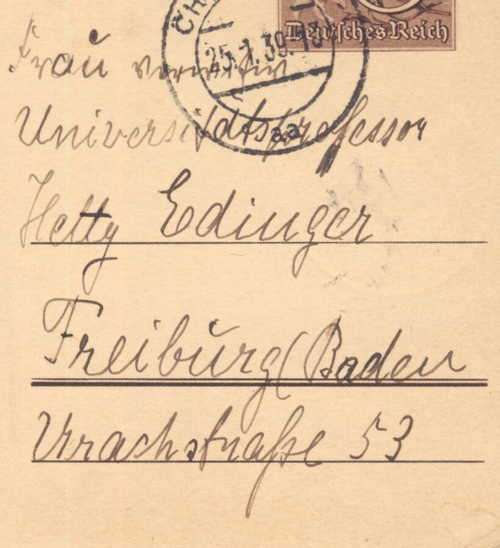 CH
25.1.39.-18
aa
Deutsches Reich
Frau verwitw
Universitätsprofessor
Hetty Edinger
Freiburg (Baden
Urachstraße 53